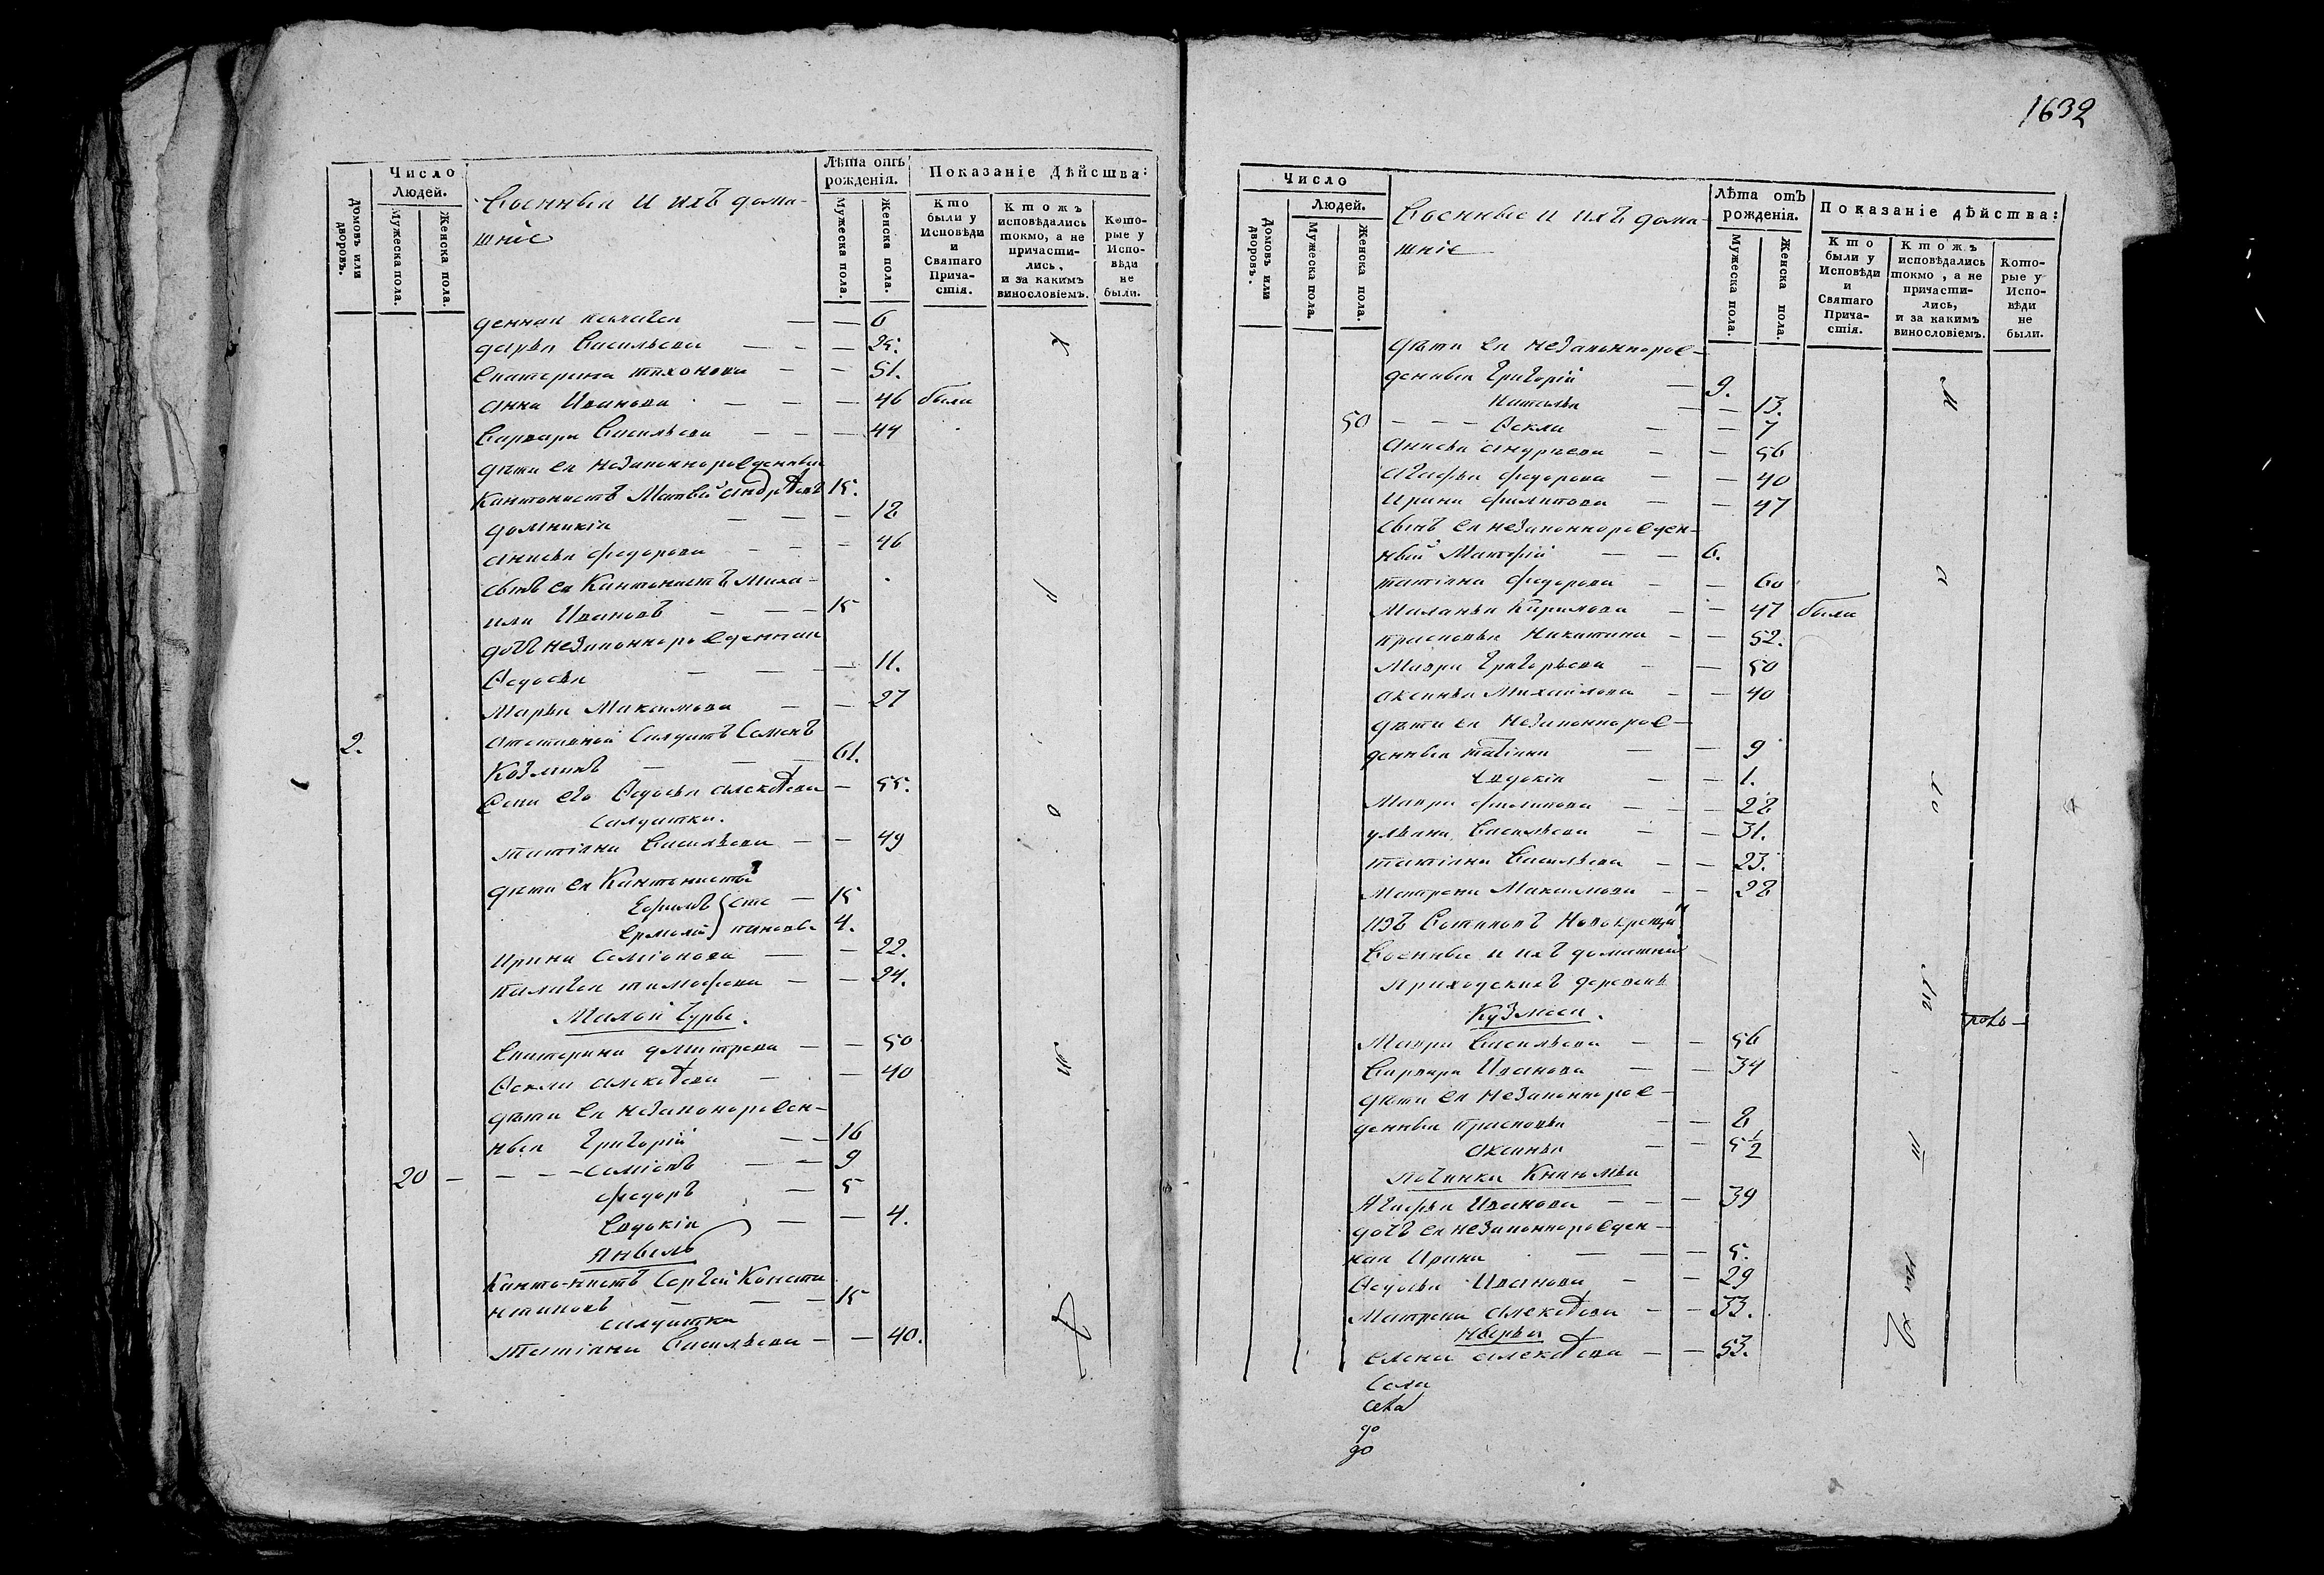 1632
Число
Людей.
Домовъ или дворовъ.
Мужеска пола.
Женска пола.
Военныя и ихъ дома-
шнiе
Лѣта отъ
рожденiя.
Мужеска пола.
Женска пола.
Показанiе Дѣйства:
Кто
были у
Исповѣди
и
Святаго
Прича-
стiя.
Ктожъ
исповѣдались
токмо, а не
причасти-
лись,
и за какимъ
винословiемъ.
Кото-
рые у
Испо-
вѣди
не
были.
денная Пелагея — — 6
дарья Васильева — — — 25.
Екатерина тихонова — — 51.
анна Иванова — — — 46 были
Варвара Васильева — — — 44
дѣти ея незаконнорожденныя
Кантонистъ Матвѣй андрѣевъ 15.
домникiа — — — 18
анисья федорова — — — 46
сынъ ея Кантонистъ Миха-
ила Ивановъ — — — 15
дочь незаконнорожденная
Ѳедосья — — — 11.
Марья Максимова — — 27
2. отставной Салдатъ Семенъ
Козминъ — — — 61.
Жена его Ѳедосья алексѣева — 55.
салдатки.
татiана Васильева — — 49
дѣти ея Кантонисты
Ефимъ } сте — 15
Ермолай } пановы 4.
ирина Семiонова — — 22.
палагея тимофеева — — 24.
Малой Гурье.
Екатерина дмитрева — — 50
Ѳекла алексѣева — — 40
дѣти ея незаконорожен-
ныя Григорiй — — 16
20 — — — — Семiонъ — — 9
федоръ — 5
Евдокiа — — 4.
Янвиль
Кантонистъ Сергей Конста
нтиновъ — — — 15
салдатка
татiана Васильева — — 40.
Число
Людей.
Домовъ или дворовъ.
Мужеска пола.
Женска пола.
Военные и ихъ дома-
шнiе
Лѣта отъ
рожденiя.
Мужеска пола.
Женска пола.
Показанiе дѣйства:
Кто
были у
Исповѣди
и
Святаго
Прича-
стiя.
Ктожъ
исповѣдались
токмо, а не
причасти-
лись,
и за какимъ
винословiемъ.
Кото-
рые у
Испо-
вѣди
не
были.
дѣти ея незаконнорож-
денныя Григорiй — 9.
Наталья — — 13.
50 — — — Ѳекла — — 7
анисья андреева — — 56
агафья федорова — — 40
ирина филипова — — 47
сынъ ея незаконнорожден-
ный Матфiй — — 6.
татiана федорова — — 60
Маланья Кирилова — — 47 были
прасковья Никитина — — 52.
Мавра Григорьева — — 50
аксинья Михаилова — — 40
дѣти ея незаконнорож-
денныя татiана — — 9
Евдокiя — — 1.
Мавра филипова — — 28
ульяна Васильева — — 31.
татiана Васильева — — 23.
Матрена Максимова — — 28
изъ Вотяковъ Новокрещен
Военные и ихъ домашнiе
приходскихъ деревень
Кузмеса.
Мавра Васильева — — 56
Варвара Иванова — — 34
дѣти ея незаконнорож-
денныя прасковья — — 8
аксинья — — 5 1/2
Агафья Иванова — — — 39
дочь ея незаконнорожден-
ная Ирина — — — 5.
Ѳедосья Иванова — — 29
Матрена алексѣева — — 33.
елена алексѣева — — 53.